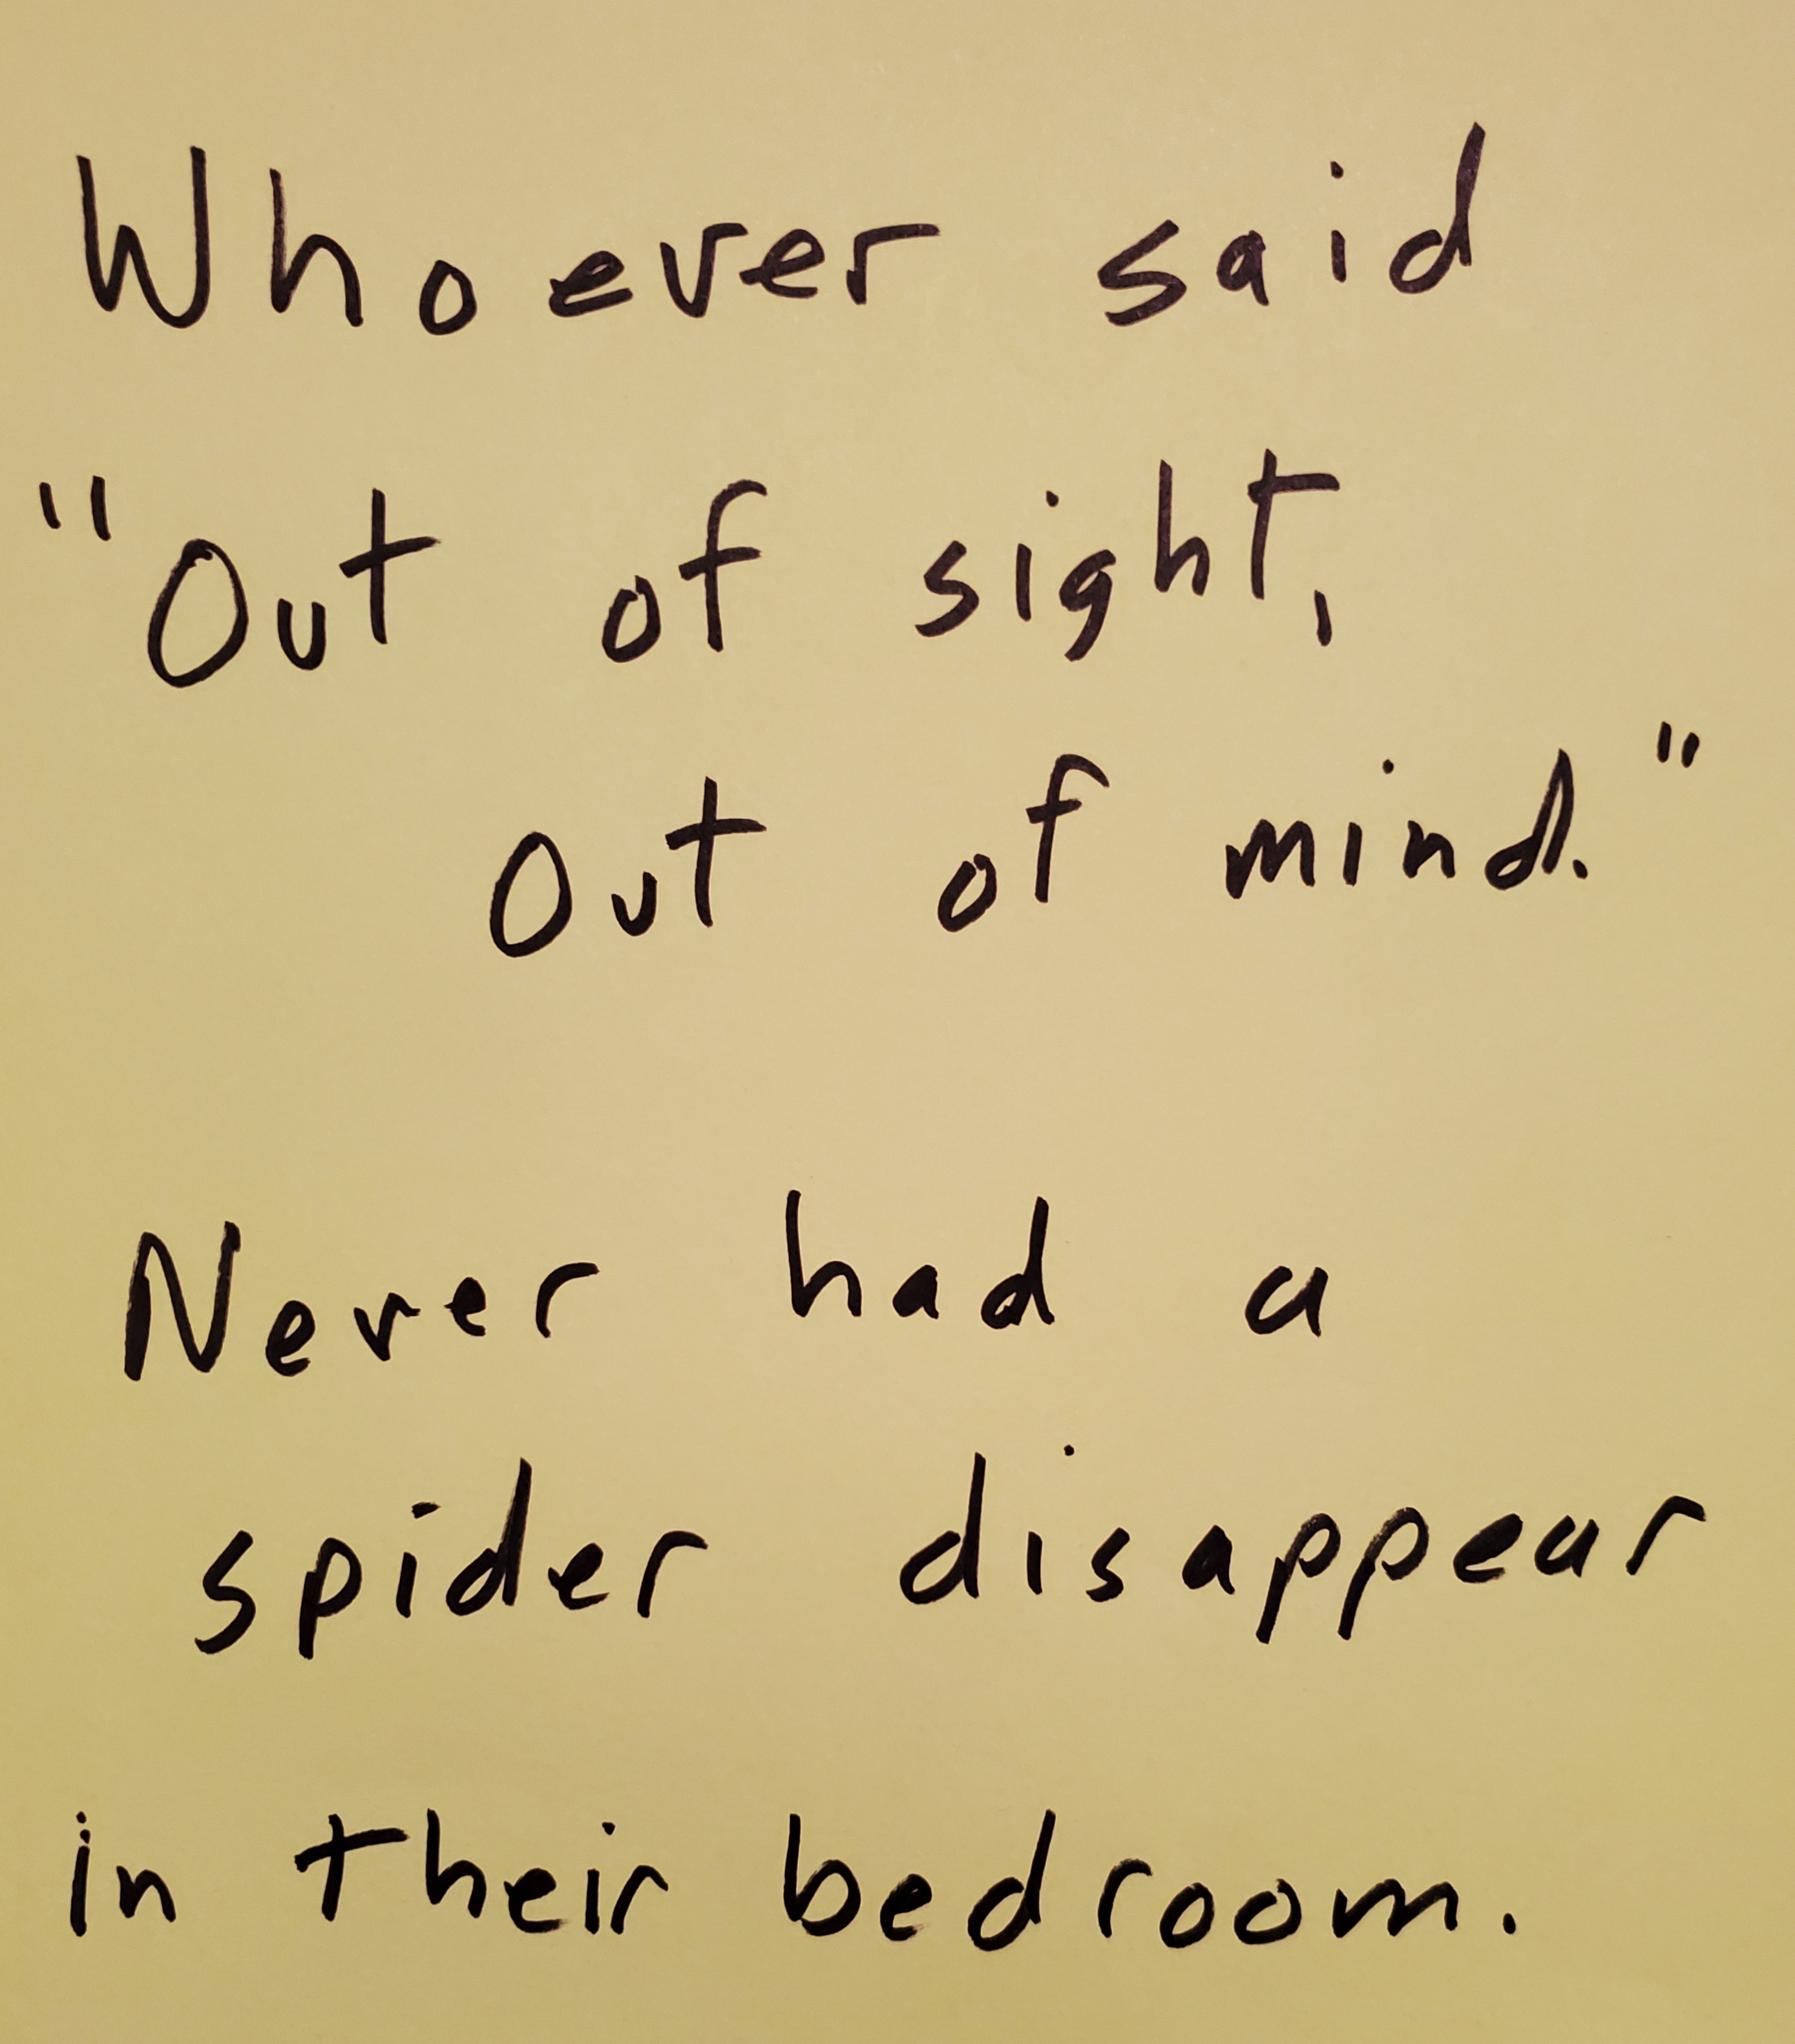 Whoever said
"Out of sight,
Out of mind."
Never had a
spider disappear
in their bedroom.